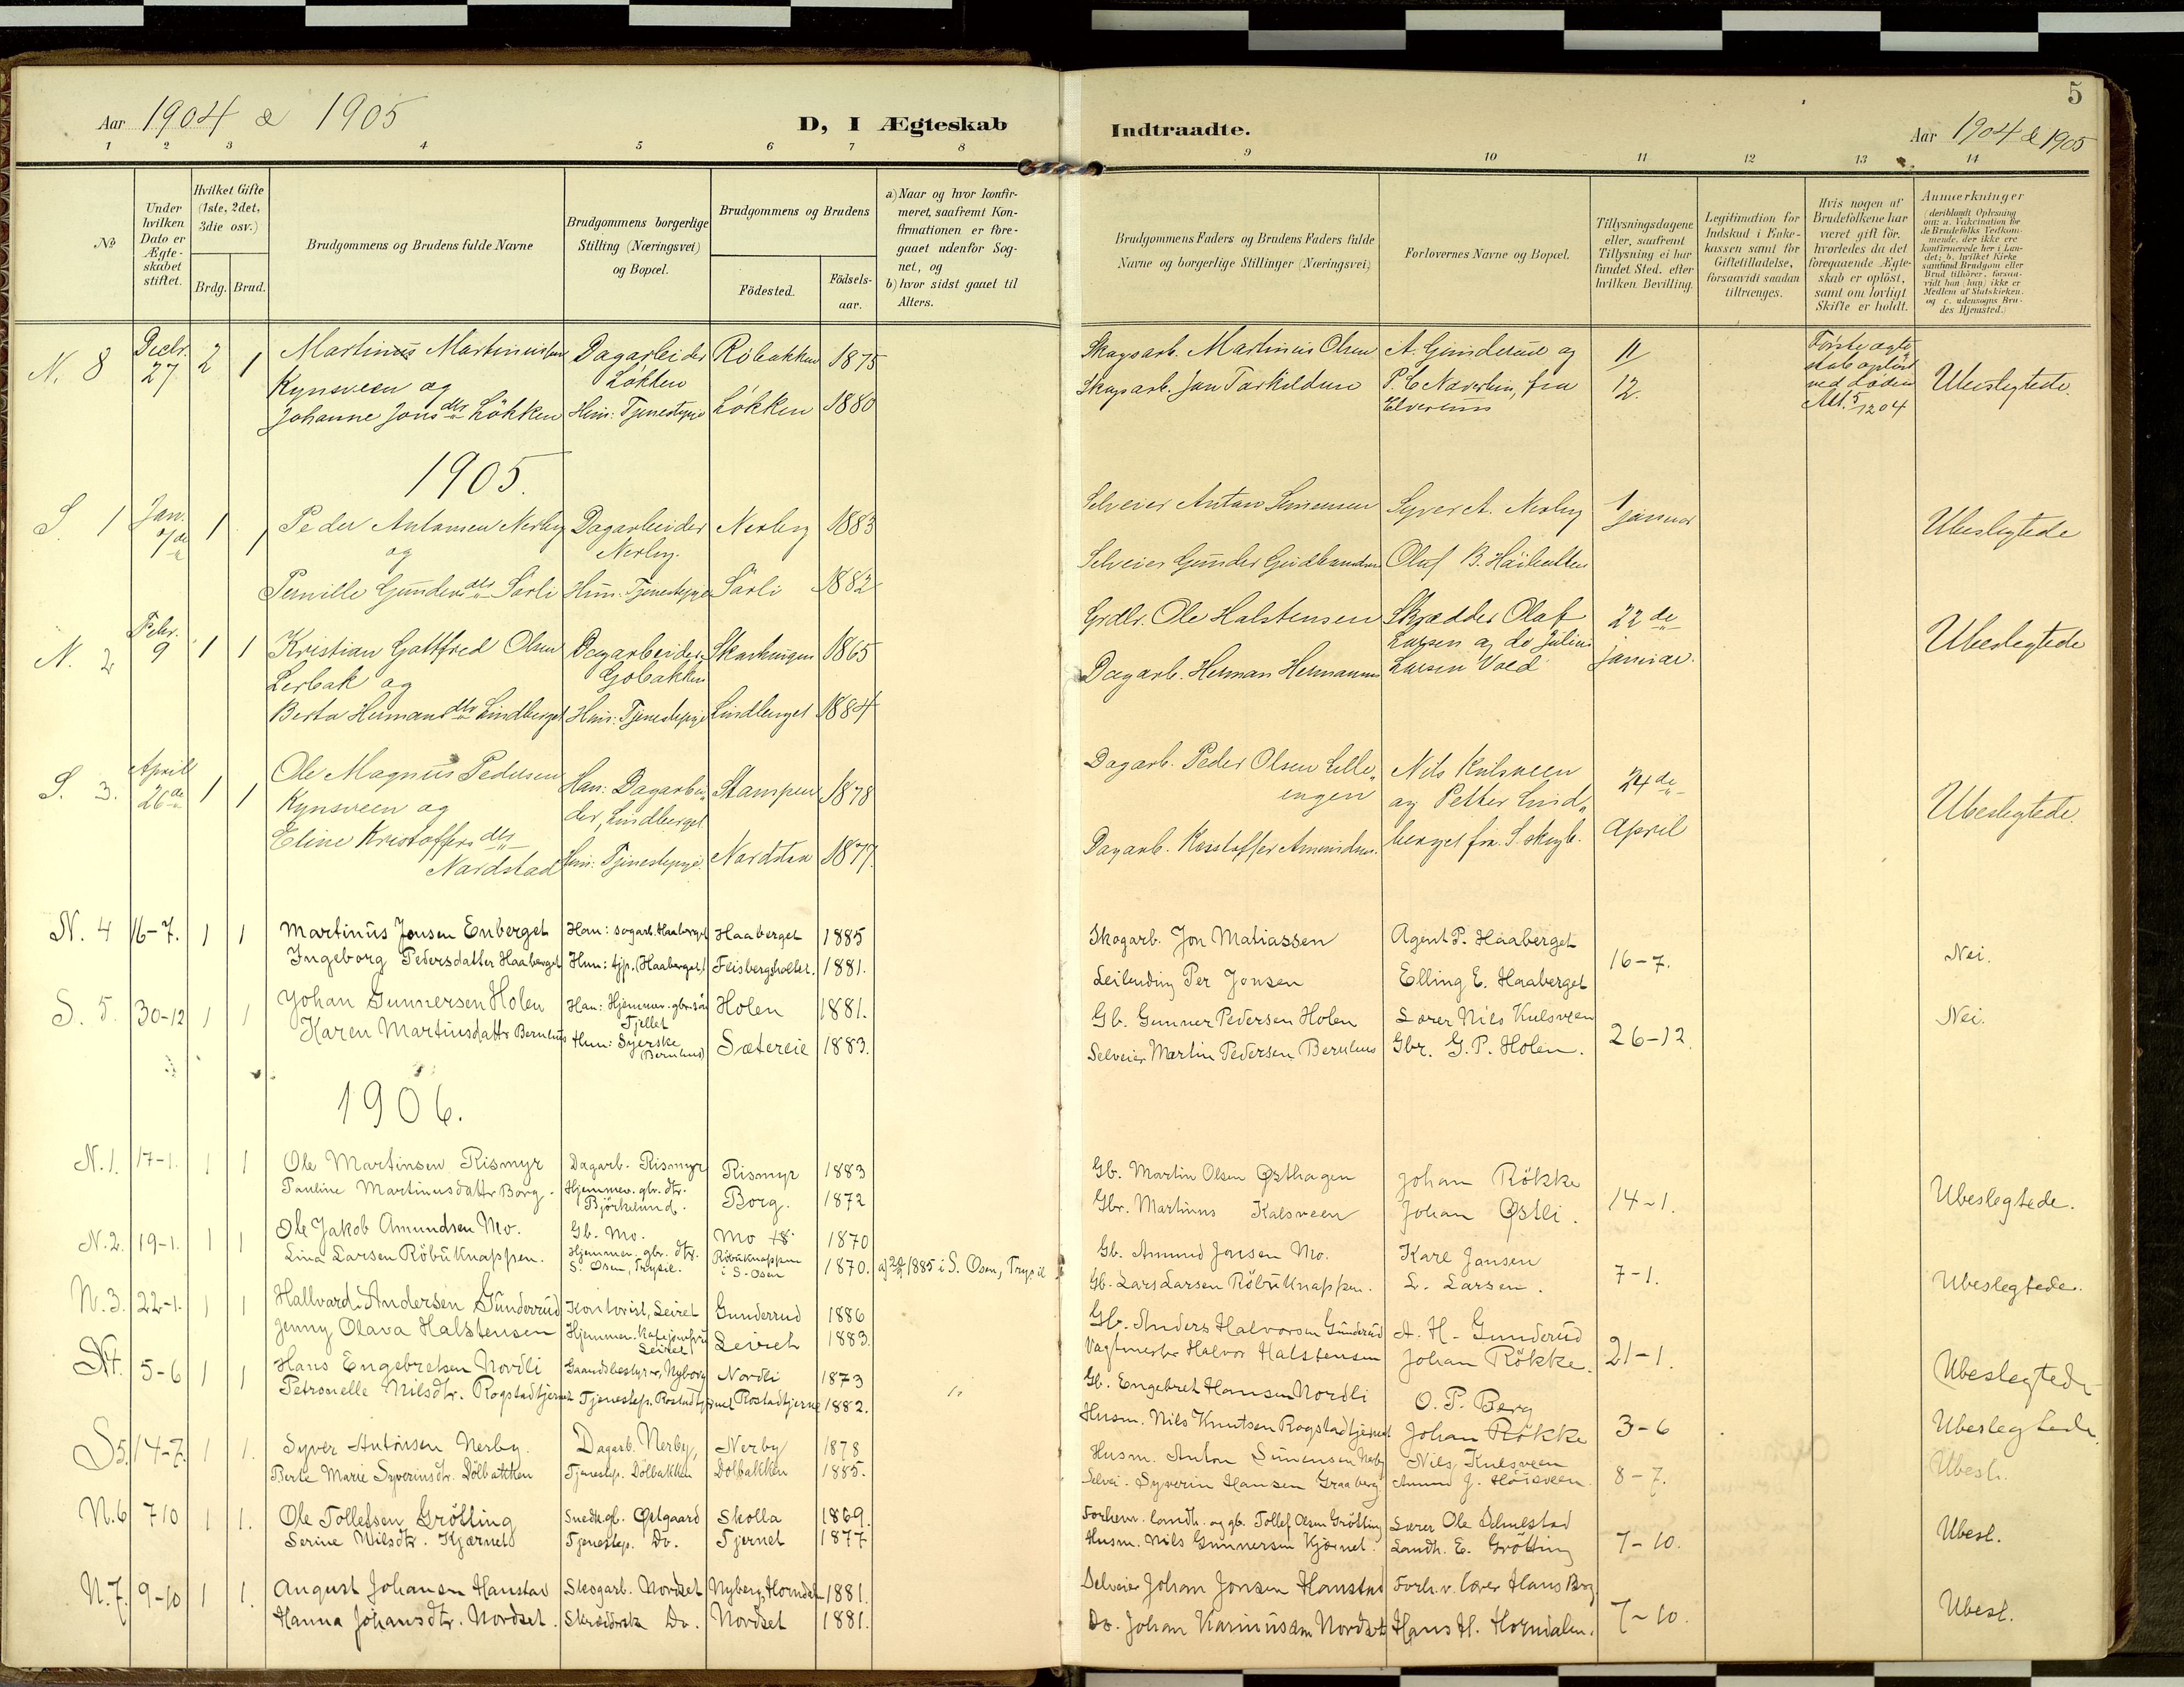 Aar 1904 & 1905
D, I Ægteskab Indtraadte.
5
Aar 1904 & 1905
1 2 3 4 5 6 7 8 9 10 11 12 13 14
No.
Under hvilken Dato er Ægteskabet stiftet.
Hvilket Gifte (1ste, 2det, 3die osv.)
Brdg. Brud.
Brudgommens og Brudens fulde Navne
Brudgommens borgerlige Stilling (Næringsvei) og Bopæl.
Brudgommens og Brudens
Födested.
Födsels-aar.
a) Naar og hvor konfirmeret, saafremt Konfirmationen er foregaaet udenfor Sognet, og
b) hvor sidst gaaet til Alters.
Brudgommens Faders og Brudens Faders fulde Navne og borgerlige Stillinger (Næringsvei)
Forlovernes Navne og Bopæl.
Tillysningsdagene eller, saafremt Tillysning ei har fundet Sted, efter hvilken Bevilling.
Legitimation for Indskud i Enkekassen samt for Giftetilladelse, forsaavidt saadan tiltrænges.
Hvis nogen af Brudefolkene har været gift för, hvorledes da det foregaaende Ægteskab er oplöst, samt om lovligt Skifte er holdt.
Anmærkninger (deriblandt Oplysning om: a. Vakcination for de Brudefolks Vedkommende, der ikke ere konfirmerede her i Landet; b. hvilket Kirkesamfund Brudgom eller Brud tilhörer, forsaavidt han (hun) ikke er Medlem af Statskirken, og c. udensogns Brudes Hjemsted.)
N. 8 Decbr. 27 2 1 Martinus Martinussen Kynsveen og Dagarbeider Løkken Röbakken 1875 Skogsarb. Martinus Olsen A. Gunderud og 11/12. Ubeslegtede.
Johanne Jonsdtr Løkken Hun: Tjenestepige Løkken 1880 Skogsarb. Jon P. C. Naverlien, fra Elverum
1905.
S. 1 Jan. 1 1 Peder Antonsen Nerby og Dagarbeider Nerby. Nerby 1883 Selveier Anton Simensen Syver A. Nerby 1 januar Ubeslegtede
Pernille Gundersdtr Sörli Hun: Tjenestepige Sörli 1882 Selveier Gunder Gudbrandsen Olaf B.
N. 2 Febr. 9 1 1 Kristian Gottfred Olsen Lerbak og Dagarbeider, Gobakken 1865 Grdbr. Ole Halstensen Skrædder Olaf Larsen og do Julius 22de januar. Ubeslegtede
Berta Hermansdtr Lindberget Hun: Tjenestepige Lindberget 1884 Dagarb. Herman Hermansen Larsen Vold
S. 3. April 26de 1 1 Ole Magnus Pedersen Kynsveen og Han: Dagarbeider, Lindberget Stampen 1878 Dagarb. Peder Olsen Lilleengen Nils Kulsveen og Petter Lindberget fra S. 24de April Ubeslegtede.
Eline Kristoffersdtr Nordstad Hun: Tjenestepige. Nordstad 1877. Dagarb. Kristoffer Amundsen.
N. 4 16-7. 1 1 Martinus Jonsen Enberget Han: sogarb. Haaberget Haaberget 1885 Skogarb. Jon Matiassen Agent P. Haaberget 16-7. Nei.
Ingeborg Pedersdatter Haaberget Hun: tjp. (Haaberget) Feisbergholtet. 1881. Leilending Per Jonsen Elling E. Haaberget
S. 5. 30-12 1 1 Johan Gunnersen Holen Han: Hjemmev. gbr. sön Fjellet Holen 1881. Gb. Gunner Pedersen Holen Lærer Nils Kulsveen 26-12. Nei.
Karen Martinsdattr Beruhus Hun: Syerske Beruhus Sætereie 1883. Selveier Martin Pedersen Beruhus Gbr. G. P. Holen.
1906.
N. 1. 17-1. 1 1 Ole Martinsen Rismyr Dagarb. Rismyr Rismyr 1883 Gb. Martin Olsen Østhagen Johan Rökke 14-1. Ubeslegtede.
Pauline Martinusdattr Borg. Hjemmev. gbr. dtr. Björkelund. Borg. 1872 Gbr. Martinus Kalsveen Johan Østli.
N. 2. 19-1. 1 1 Ole Jakob Amundsen Mo. Gb. Mo. Mo 1870 Gb. Amund Jonsen Mo. Karl Jansen 7-1. Ubeslegtede.
Lina Larsen Röbuknappen. Hjemmev. gbr. dtr. S. Osen, Trysil. Röbuknappen i S-Osen 1870. 1885 i S. Osen, Trysil Gb. Lars Larsen Röbuknappen. L. Larsen.
N. 3. 22-1. 1 1 Hallvard Andersen Gunderrud Kontorist, Leiret Gunderrud 1886 Gb. Anders Halvorsen Gunderud A. H. Gunderud 21-1. Ubeslegtede
Jenny Olava Halstensen Hjemmev. Leiret Leiret 1883. Vagtmester Halvor Halstensen Johan Rökke.
N4. 5-6 1 1 Hans Engebretsen Nordli Gaardsbestyrer, Nyborg Nordli 1873 Gb. Engebret Hansen Nordli O. P. Berg 3-6 Ubeslegtede
Petronelle Nilsdtr. Rogstadtjernet Tjenestep. Rostadtjernet Rostadtjerne 1882. Husm. Nils Knutsen Rogstadtjernet Johan Rökke
S5. 14-7. 1 1. Syver Antonsen Nerby. Dagarb. Nerby, Nerby 1878 Husm. Anton Simensen Nerby Nils Kulsveen 8-7. Ubesl.
Berte Marie Syverinsdtr. Dölbakken Tjenestep. Dölbakken Dölbakken 1885. Selvei. Syverin Hansen Graaberg. Amund J.
N. 6 7 10 1 1. Ole Tollefsen Grötting Snedk. gb. Østgaard Skolla 1869. Forhenv. landh. og gb. Tollef Olsen Grötting Lærer Ole 7-10. Ubesl.
Serine Nilsdtr. Kjærnet Tjenestep. Do. Tjernet 1877 Husm. Nils Gunnersen Kjærnet. Landh. E. Grötting
N. 7. 9-10 1 1. August Johansen Hanstad Skogarb. Nordset Nyberg, Horndal 1881. Selveier Johan Jonsen Hanstad Forh. v. lærer Hans Berg 7-10. Ubesl.
Hanna Johansdtr. Nordset. Skrædderske Do. Nordset 1881. Do. Johan Karinusen Nordset Hans H. Horndalen.